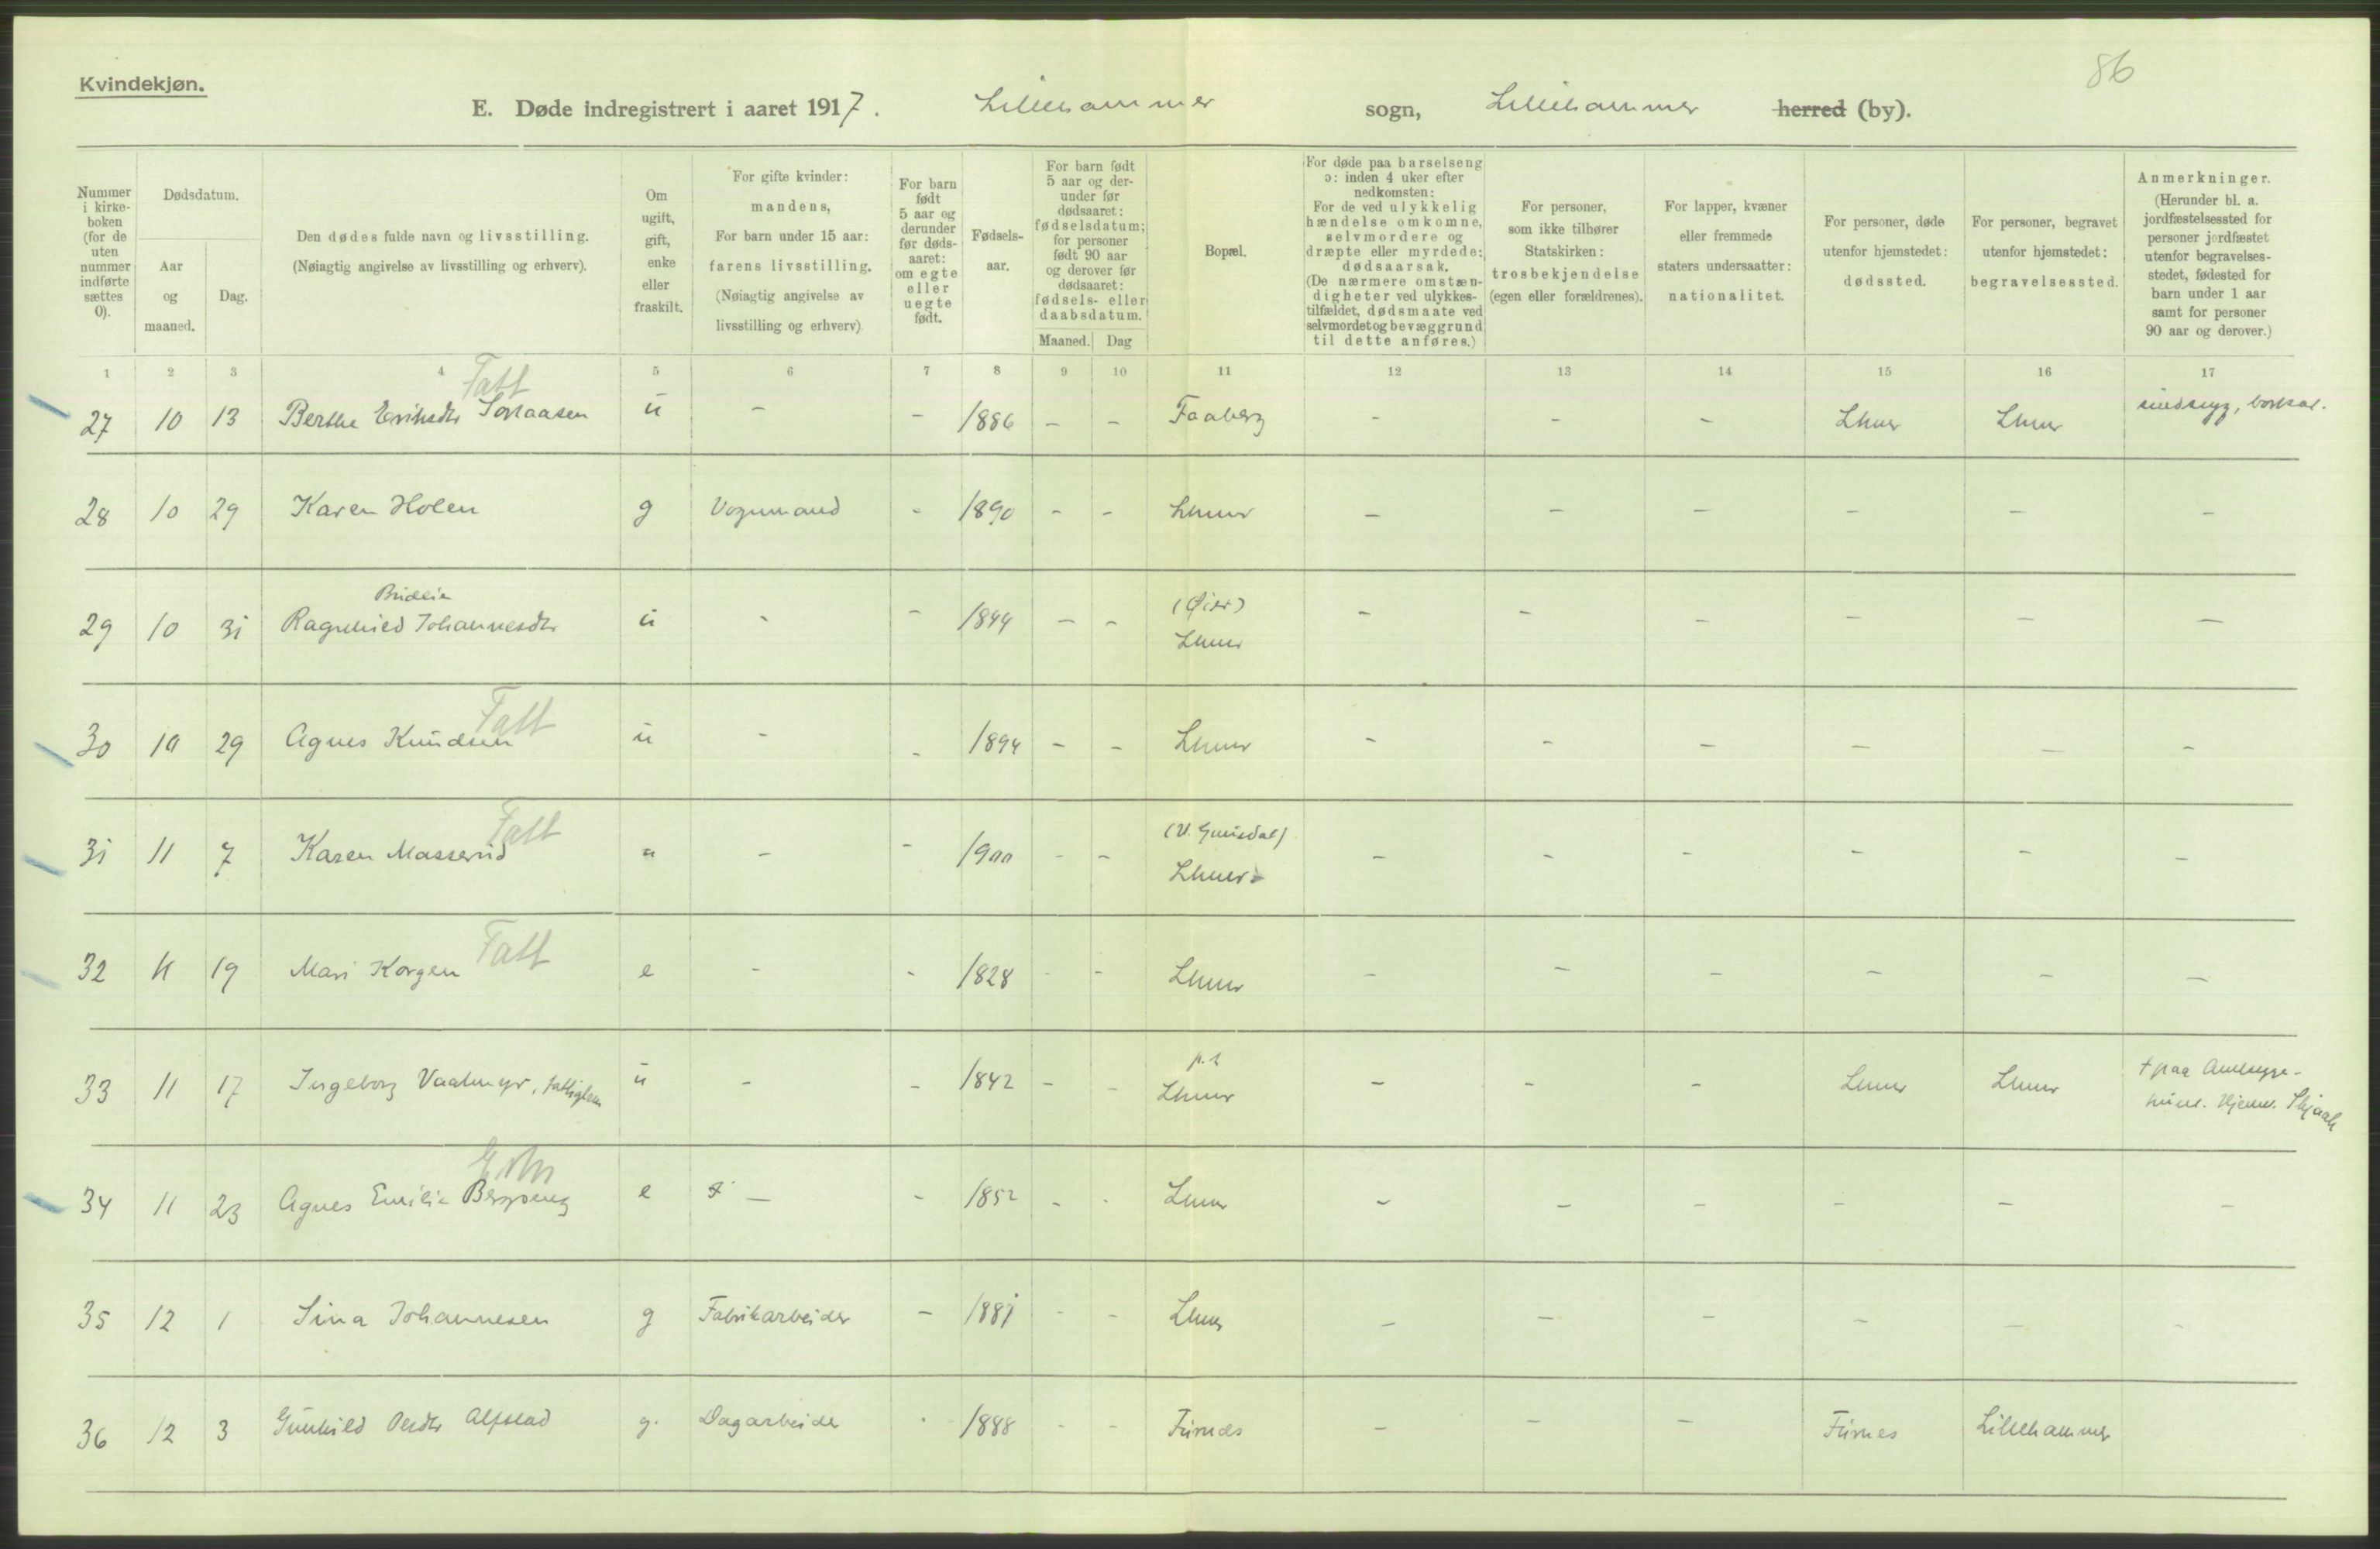 86
Kvindekjøn.
E. Døde indregistrert i aaret 1917. Lillehammer sogn, Lillehammer herred (by).
Nummer i kirke-boken (for de uten nummer indførte sættes 0).
Dødsdatum.
Aar og maaned.
Dag.
Den dødes fulde navn og livsstilling.
(Nøiagtig angivelse av livsstilling og erhverv).
Om ugift, gift, enke eller fraskilt.
For gifte kvinder: mandens,
For barn under 15 aar: farens livsstilling.
(Nøiagtig angivelse av livsstilling og erhverv)
For barn født 5 aar og derunder før døds-aaret: om egte eller uegte født.
Fødsels-aar.
For barn født 5 aar og der-under før dødsaaret: fødselsdatum; for personer født 90 aar og derover før dødsaaret: fødsels- eller daabsdatum.
Maaned.
Dag
Bopæl.
For døde paa barselseng ɔ: inden 4 uker efter nedkomsten:
For de ved ulykkelig hændelse omkomne, selvmordere og dræpte eller myrdede: dødsaarsak.
(De nærmere omstæn-digheter ved ulykkes-tilfældet, dødsmaate ved selvmordet og bevæggrund til dette anføres.)
For personer, som ikke tilhører Statskirken: trosbekjendelse (egen eller forældrenes).
For lapper, kvæner eller fremmede staters undersaatter: nationalitet.
For personer, døde utenfor hjemstedet: dødssted.
For personer, begravet utenfor hjemstedet: begravelsessted.
Anmerkninger.
(Herunder bl. a. jordfæstelsessted for personer jordfæstet utenfor begravelses-stedet, fødested for barn under 1 aar samt for personer 90 aar og derover.)
1 2 3 4 5 6 7 8 9 10 11 12 13 14 15 16 17
Fatt
27 10 13 Berthe Eriksdtr u - - 1886 - - Faaberg - - - Lhmr Lhmr
28 10 29 Karen Holen g Vognmand - 1890 - - Lhmr - - - - - -
Bridlie (Øier)
29 10 31 Ragnhild Johannesdtr u - - 1844 - - Lhmr - - - - - -
Fatt
30 10 29 Agnes Knudsen u - - 1894 - - Lhmr - - - - - -
Fatt (V. Gausdal)
31 11 7 Karen Masserud u - - 1900 - - Lhmr - - - - - -
Fatt
32 11 19 Mari Korgen e - - 1828 - - Lhmr - - - - - -
p.t
33 11 17 Ingeborg u - - 1842 - - Lhmr - - - Lhmr Lhmr † paa
34 11 23 Agnes Emilie Bergseng e - - 1852 - - Lhmr - - - - - -
35 12 1 Sina Johannesen g Fabrikarbeider - 1881 - - Lhmr - - - - - -
36 12 3 Gunhild Olsdtr Alfstad g. Dagarbeider - 1888 - - Furnes - - - Furnes Lillehammer